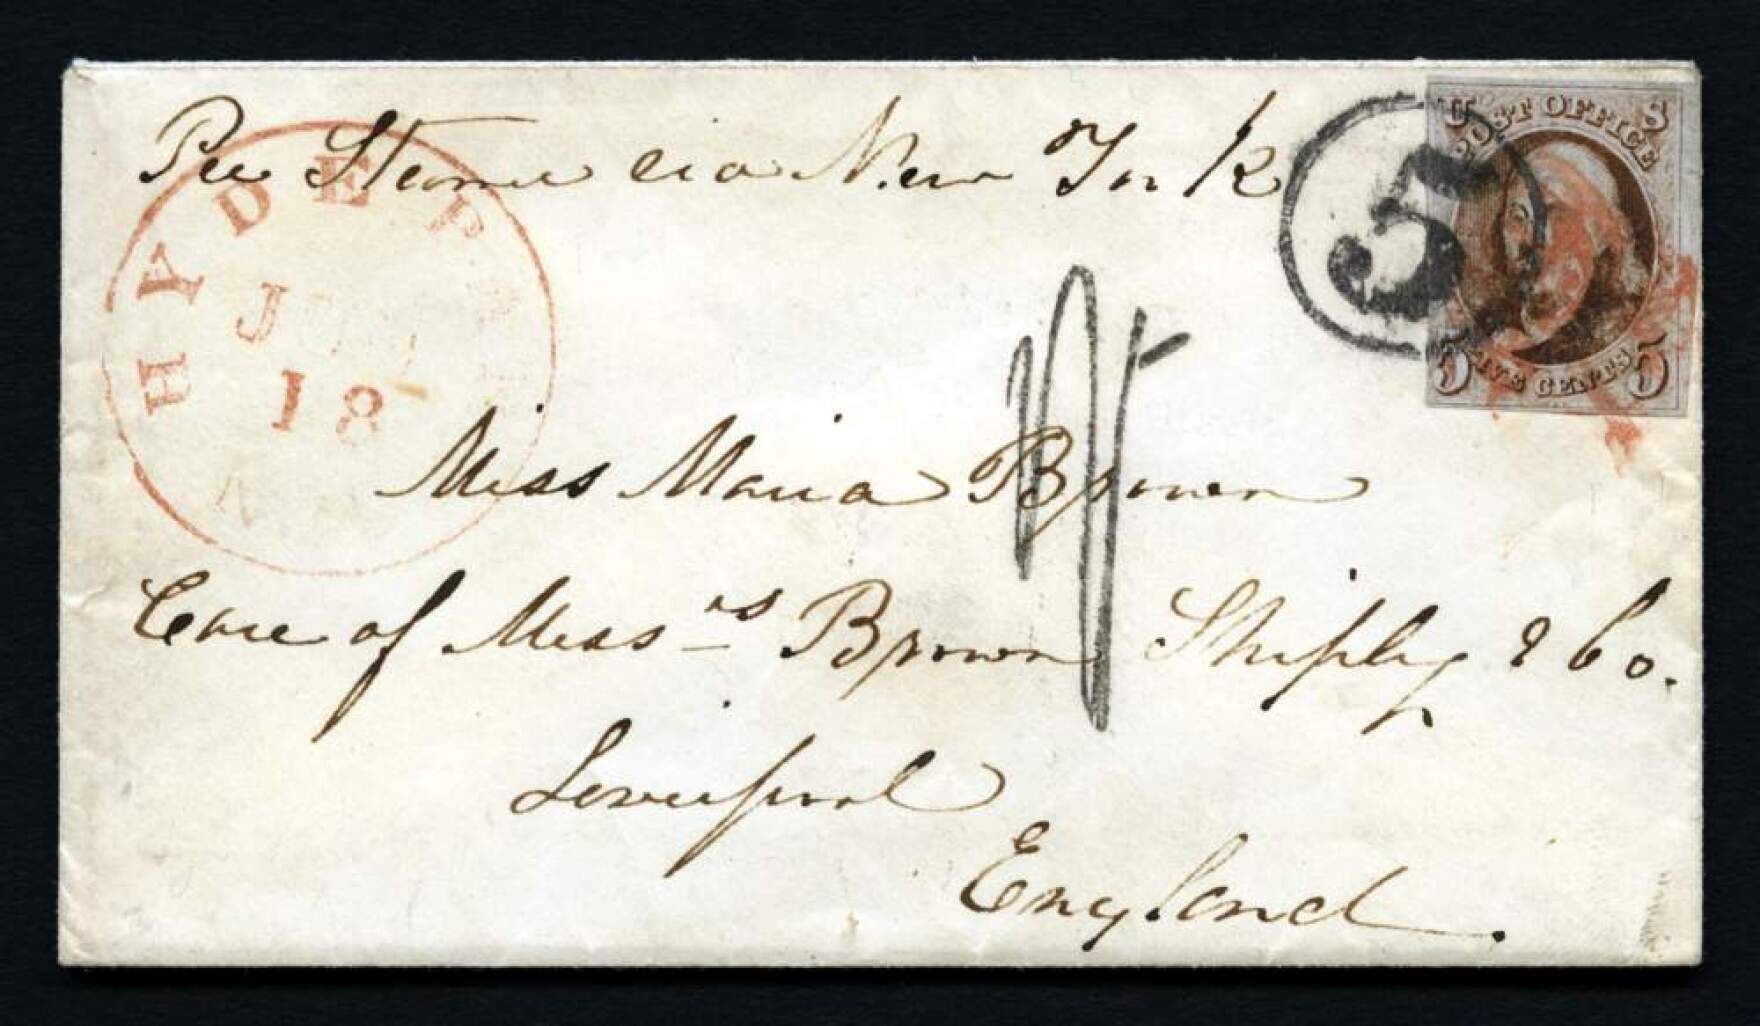 Per Steamer via New York
HYDE P
J
18
5
U S
POST OFFICE
5 FIVE CENTS 5
Miss Maria Brown
Care of Mess.rs Brown Shipley & Co.
Liverpool
England.